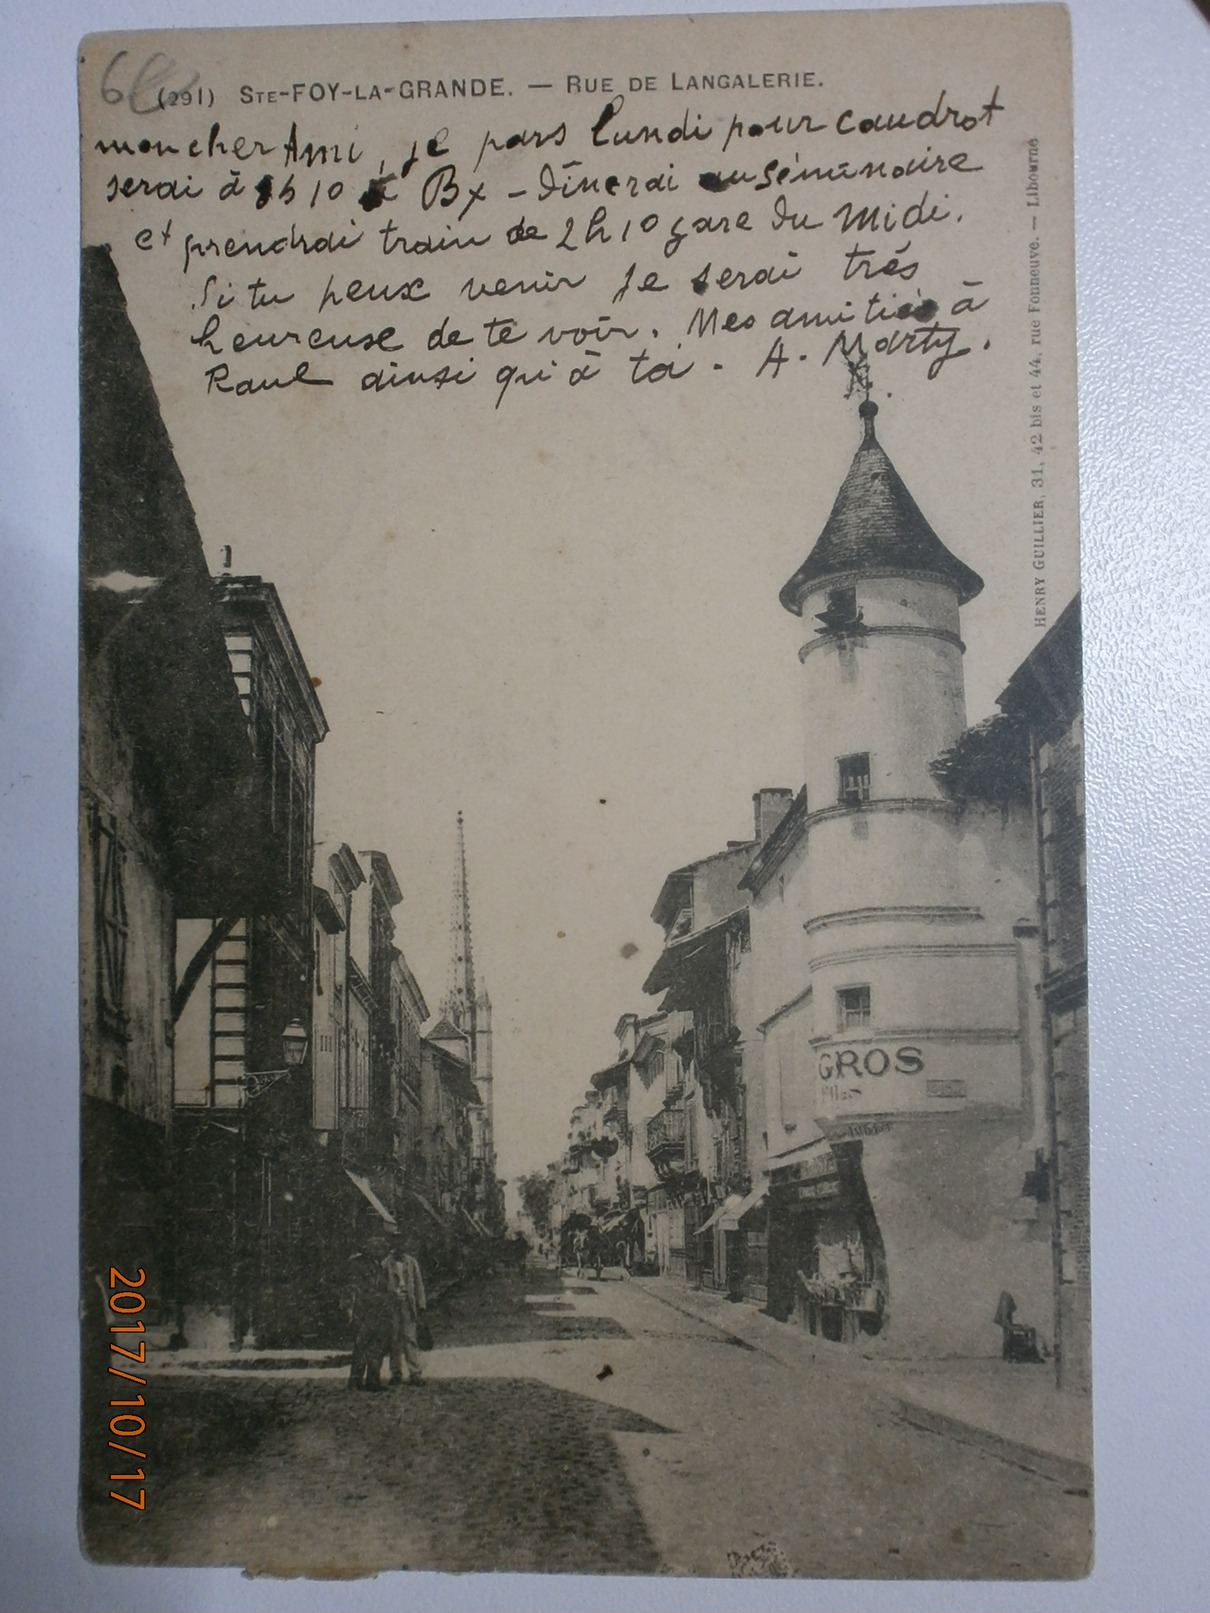 (291) STE-FOY-LA-GRANDE. — RUE DE LANGALERIE.
mon cher Ami, je pars lundi pour Caudrot
serai à 8h10 à Bx - Dînerai au Séminaire
et prendrai train de 2h10 gare du Midi.
Si tu peux venir je serai très
heureuse de te voir. Mes amitiés à
Raul ainsi qu'à toi. A. Marty.
HENRY GUILLIER, 31, 42 bis et 44, rue Fonneuve. — Libourne
GROS
2017/10/17